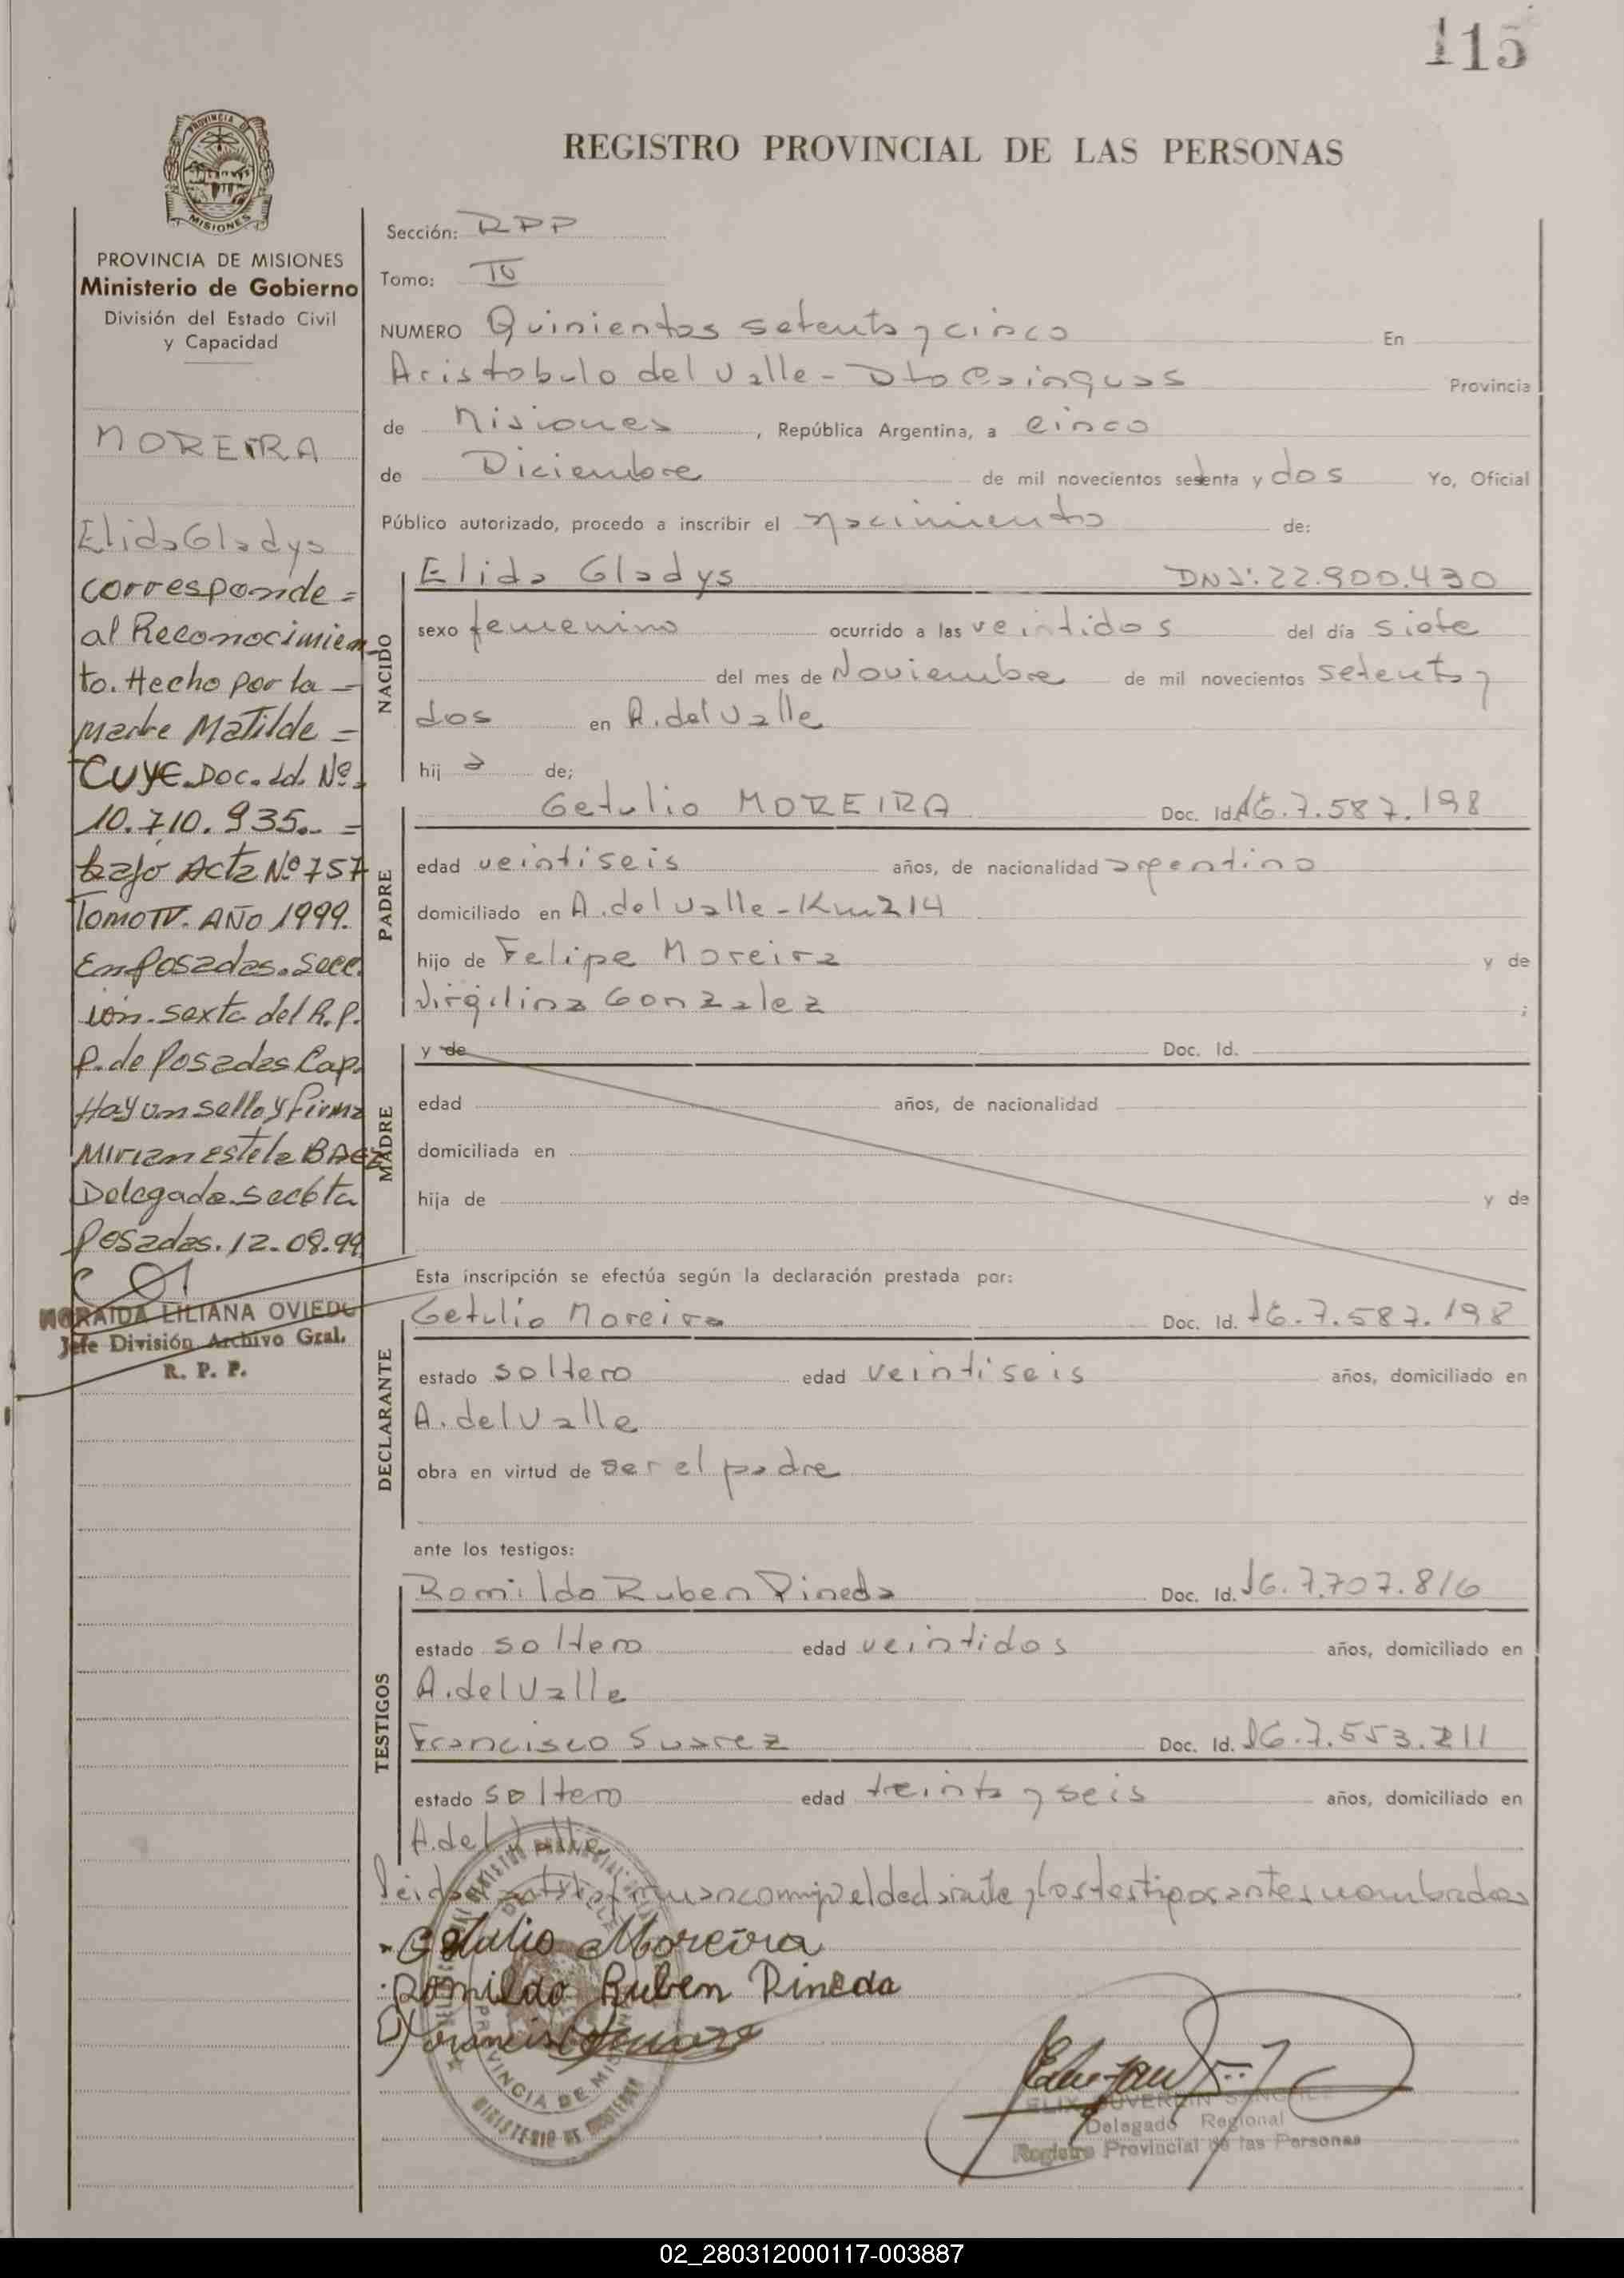 115
PROVINCIA DE
MISIONES
REGISTRO PROVINCIAL DE LAS PERSONAS
PROVINCIA DE MISIONES
Ministerio de Gobierno
División del Estado Civil
y Capacidad
MOREIRA
Elida Gladys
corresponde =
al Reconocimien
to. Hecho por la -
madre Matilde =
CUYE. Doc. Id. Nº
10.710.935.. =
bajo Acta Nº 757
Tomo IV. AÑO 1999.
En Posadas. Secc.
ión. sexta del R.P.
P. de Posadas Cap.
Hay un sello y firma
Mirian estela BAEZ
Delegada. Sec 6ta
Posadas. 12-08-99
NORAIDA LILIANA OVIEDO
Jefe División Archivo Gral.
R. P. P.
Sección: RPP
Tomo: IV
NUMERO Quinientos setenta y cinco En
Aristobulo del Valle - Dto Cainguas Provincia
de Misiones, República Argentina, a cinco
de Diciembre de mil novecientos setenta y dos Yo, Oficial
Público autorizado, procedo a inscribir el nacimiento de:
NACIDO
Elida Gladys DNI: 22.900.430
sexo femenino ocurrido a las veintidos del día siete
del mes de Noviembre de mil novecientos setenta y
dos en A. del Valle
hij a de;
PADRE
Getulio MOREIRA Doc. Id. 7.587.198
edad veintiseis años, de nacionalidad argentino
domiciliado en A. del Valle - Km 214
hijo de Felipe Moreira y de
Virgilina Gonzalez ;
MADRE
y de Doc. Id.
edad años, de nacionalidad
domiciliada en
hija de y de
Esta inscripción se efectúa según la declaración prestada por:
DECLARANTE
Getulio Moreira Doc. Id. 7.587.198
estado soltero edad veintiseis años, domiciliado en
A. del Valle
obra en virtud de ser el padre
ante los testigos:
TESTIGOS
Romildo Ruben Pineda Doc. Id. 7.707.816
estado soltero edad veintidos años, domiciliado en
A. del Valle
Francisco Suarez Doc. Id. 7.553.211
estado soltero edad treinta y seis años, domiciliado en
A. del Valle
Leida el acta la firman conmigo el declarante y los testigos antes nombrados
Getulio Moreira
Romildo Ruben Pineda
PROVINCIA DE MISIONES
MINISTERIO DE GOBIERNO
Delegado Regional
Registro Provincial de las Personas
02_280312000117-003887